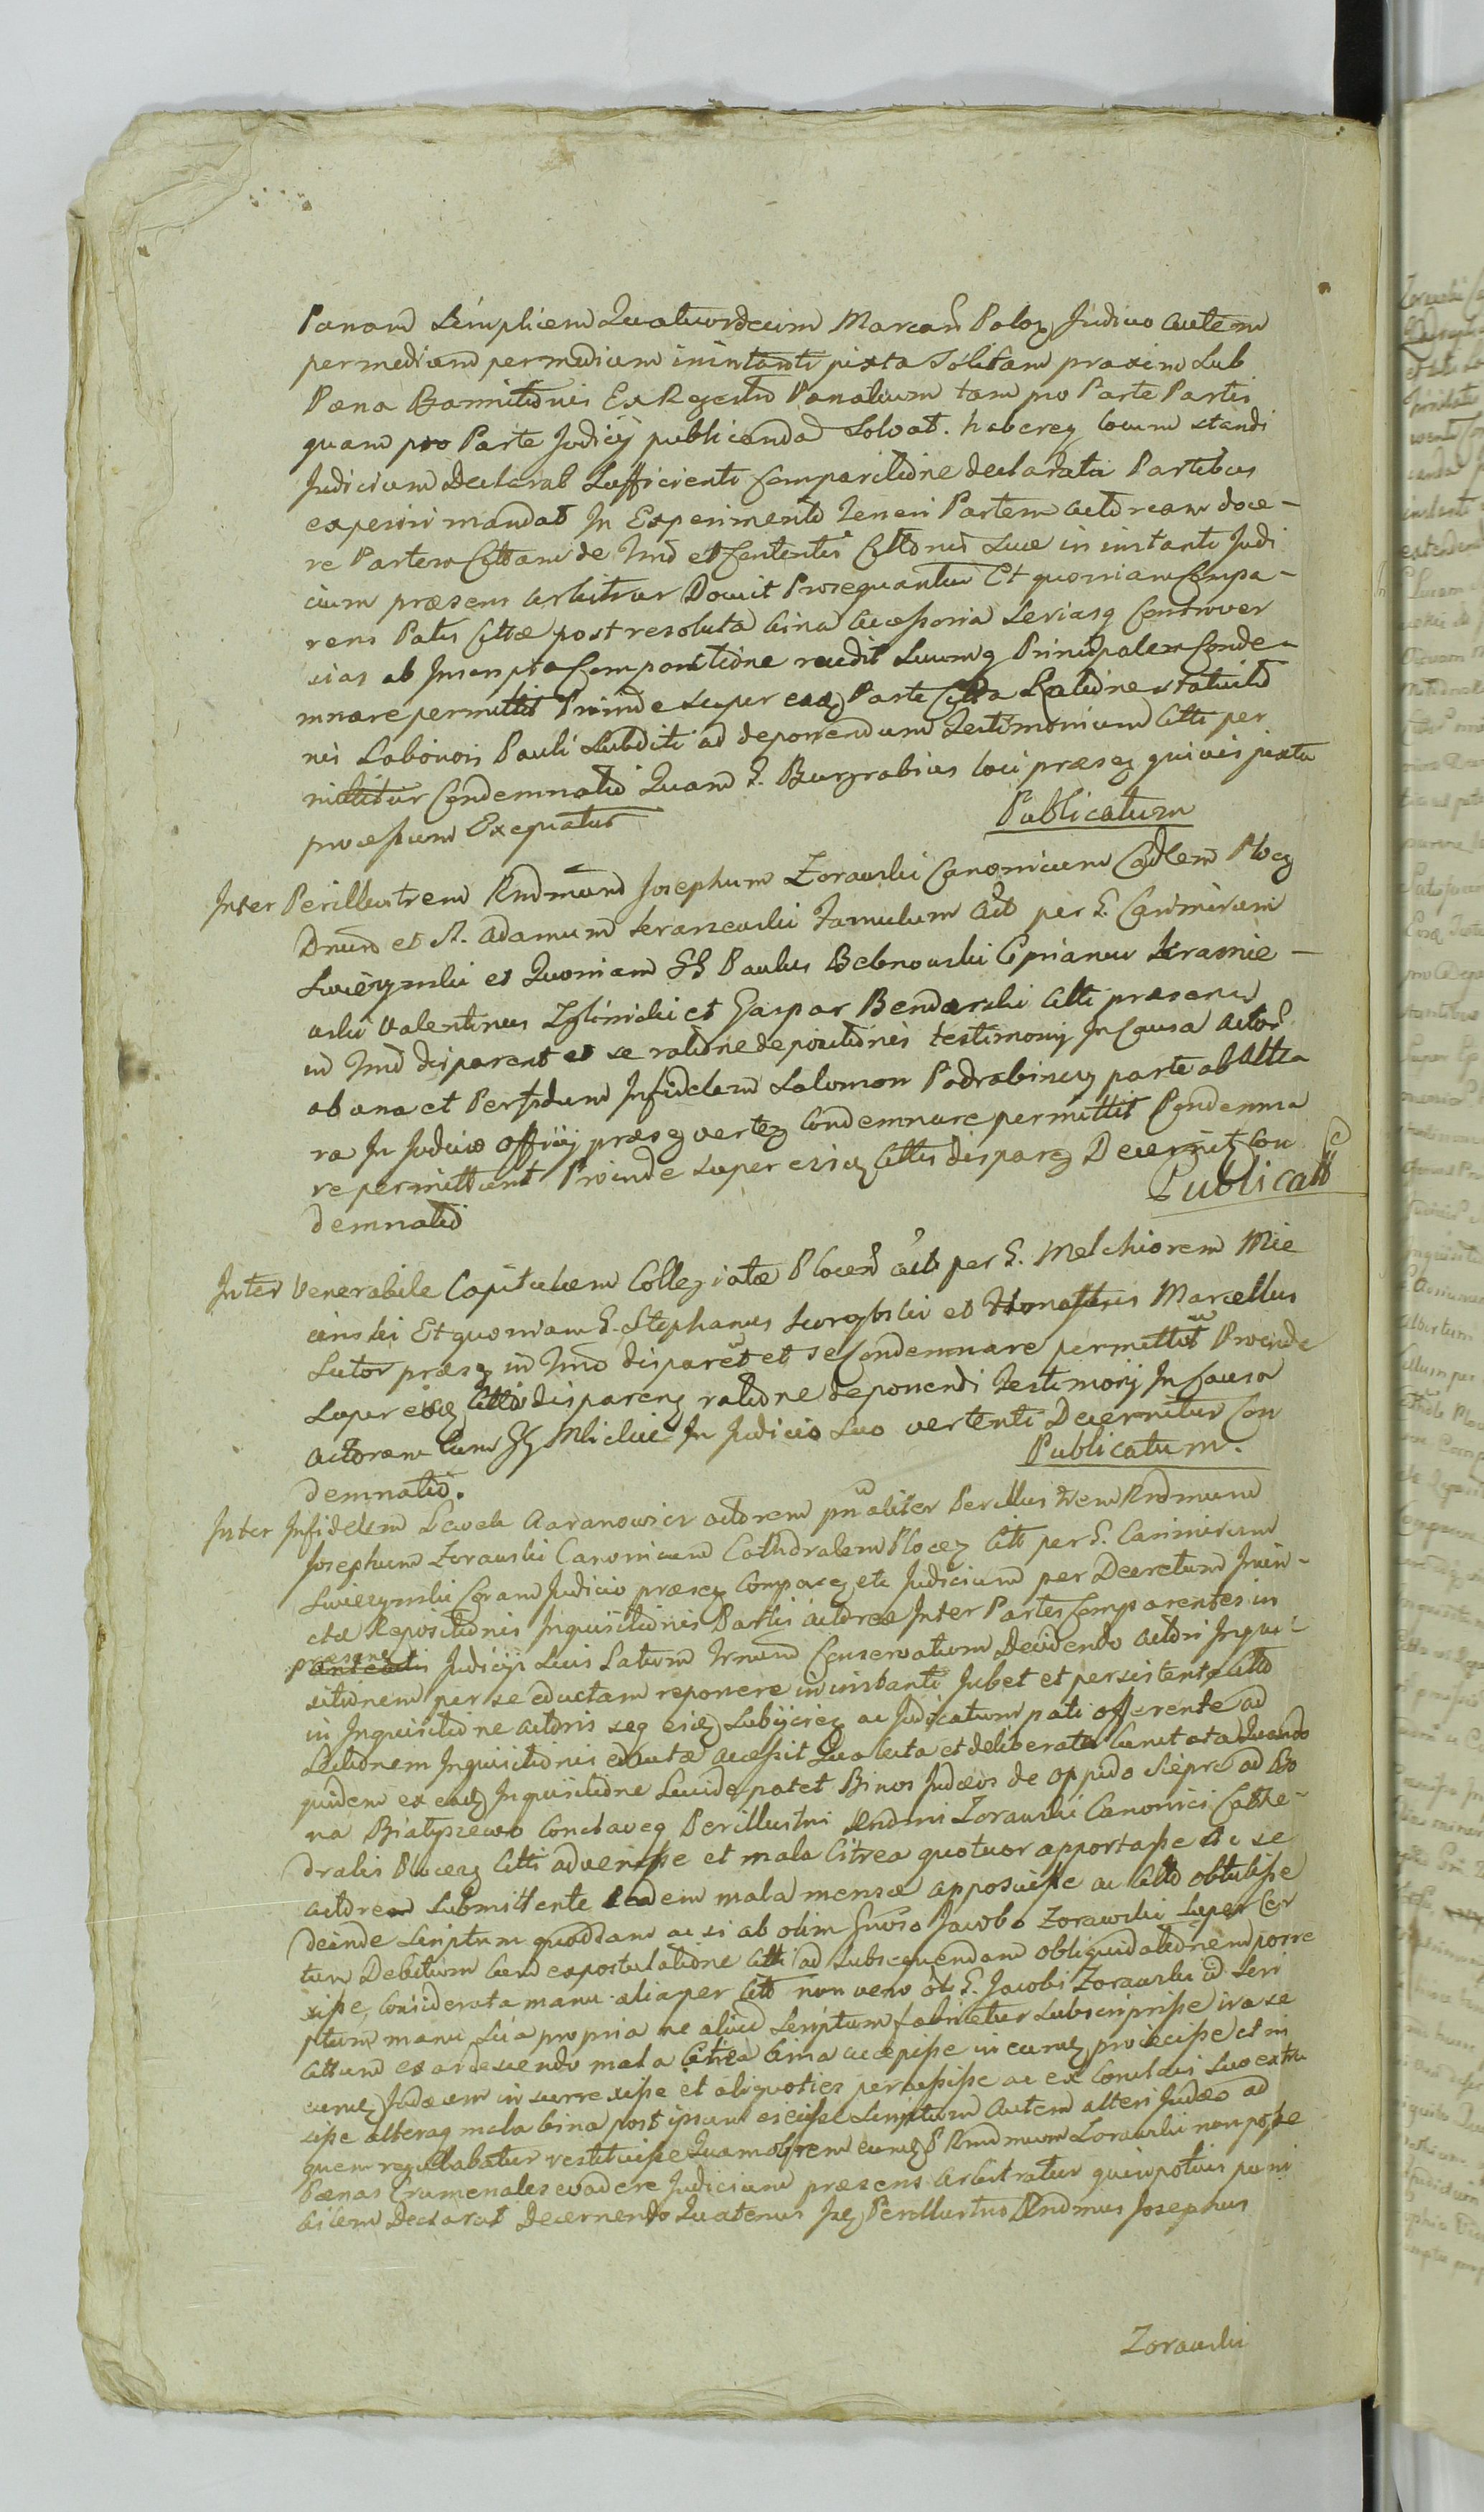 Panam Simplicem Quatuordecim Marcar Polog Judicio autem
per mediam per medium in instanti juxta Solitam praxim Sub
Pæna Bannitionis Ex Regestro Pænalium tam pro Parte Partis
quam pro Parte Judicij publicanda Solvat. habereq locum standi
Judicium Declarat Sufficienti Comparitione declarata Partibus
experiri mandat In Experimento Teneri Partem actoream doce-
re Partem Cittam de Tmo et Contentis Cittonis Suæ in instanti Judi
cium præsens arbitrar Docuit Prosequantur Et quoniam Compa-
rens Patis Cittæ post resoluta bina accessoria Seriasq Controver
sias ab Inscripta Comparitione recedit Suumq Principalem Conde-
mnare permittit Proinde super eadq Parte Citta Ratione statuitio
nis Laboriosi Pauli Subditi ad deponendum Testimonium Citti per
mittitur Condemnatio Quam G. Burgrabius loci præseq quivis juxta
processum Exequatur
Publicatum
Inter Perillustrem Rndmum Josephum Zorawski Canonicum Cadlem Plocq
Dnum et N. Adamum Seraszewski Famulum act per G. Casimirum
Swiezynski et Quoniam GG Paulus Bebnowski Ciprianus Krasnie-
wski Valentinus Zglinicki et Gaspar Bendorski Citti præsenq
in Tmo disparent et se ratione depositionis testimonij In Causa actor
ab una et Perfidum Infidelem Salomon Podrabineq parte ab alte
ra In Judicio officij præseq verteq Condemnare permittit Condemna
re permittunt Proinde super eisq Cittis dispareq Decernitq Con
demnatio
Publicatt
Inter Venerabile Capitulum Collegiatæ Plocen act per G. Melchiorem Mie
cinski Et quoniam G. Stephanus Surzybski et Honestus Marcellus
Sutor præseq in Tmo disparet et se Condemnare permittit Proinde
super eisq Cittis dispareng ratione deponendi Testimonij In Causa
actoream Cum Mlickie In Judicio Suo vertenti Decernitur Con
demnatio.
Publicatum.
Inter Infidelem Lewek Aaranowicz actorem pnaliter Perillustrem Rndmum
Josephum Zorawski Canonicum Cathedralem Plocq Citt per G. Casimirum
Swiezynski Coram Judicio præseq Compareq etc Judicium per Decretum Injun-
ctæ Repositionis Inquisitionis Partis actoreæ Inter Partes Comparentes in
præsene Judicijs Suis Latum Irmum Conservatum Decidendo actori Inqui-
sitionem per se eductam reponere in instanti Jubet et persistente Citto
in Inquisitione actoris seq eidq Subijcieq ac Judicatum pati offerente ad
Lectionem Inquisitionis eductæ accessit Qua lecta et deliberata Cunctata Quando
quidem ex eadq Inquisitione Lucide patet Binos Judæos de oppido Sieprc ad Bo
na Białyszewo Conclaveq Perillustri Rndmi Zorawski Canonici Cathe-
dralis Plocenq Citti advenisse et mala Citrea quatuor apportasse Ac se
actorem Submittente Eadem mala mensæ apposuisse ac Citto obtulisse
deinde Scriptum quoddam ac si ab olim Gnoso Jacobo Zorawski Super Cer
tum Debitum Cum expostulatione Citti ad Subsequendam obliquidationem porre
xisse, Considerata manu alia per Citt non vero olt G. Jacobi Zorawski id Scri
ptum manu Sua propria ne aliud Scriptum fabricetur Subscripsisse ira se
Cittum exardescendo mala Citrea bina accepisse in eumq projecisse et in
eumq Judæum insurrexisse et aliquoties percussisse ac ex Conclavi Suo extru
sisse alteraq mala bina post ipsum ejecisse Scriptum autem alteri Judæo ad
quem regullabatur restituisse Quamobrem eumq P Rndmum Zorawski non posse
Pænas Crumenales evadere Judicium præsens Arbitratur quin potius puni
bilem Declarat Decernendo Quatenus Iq Perillustris Rndmus Josephus
Zorawski